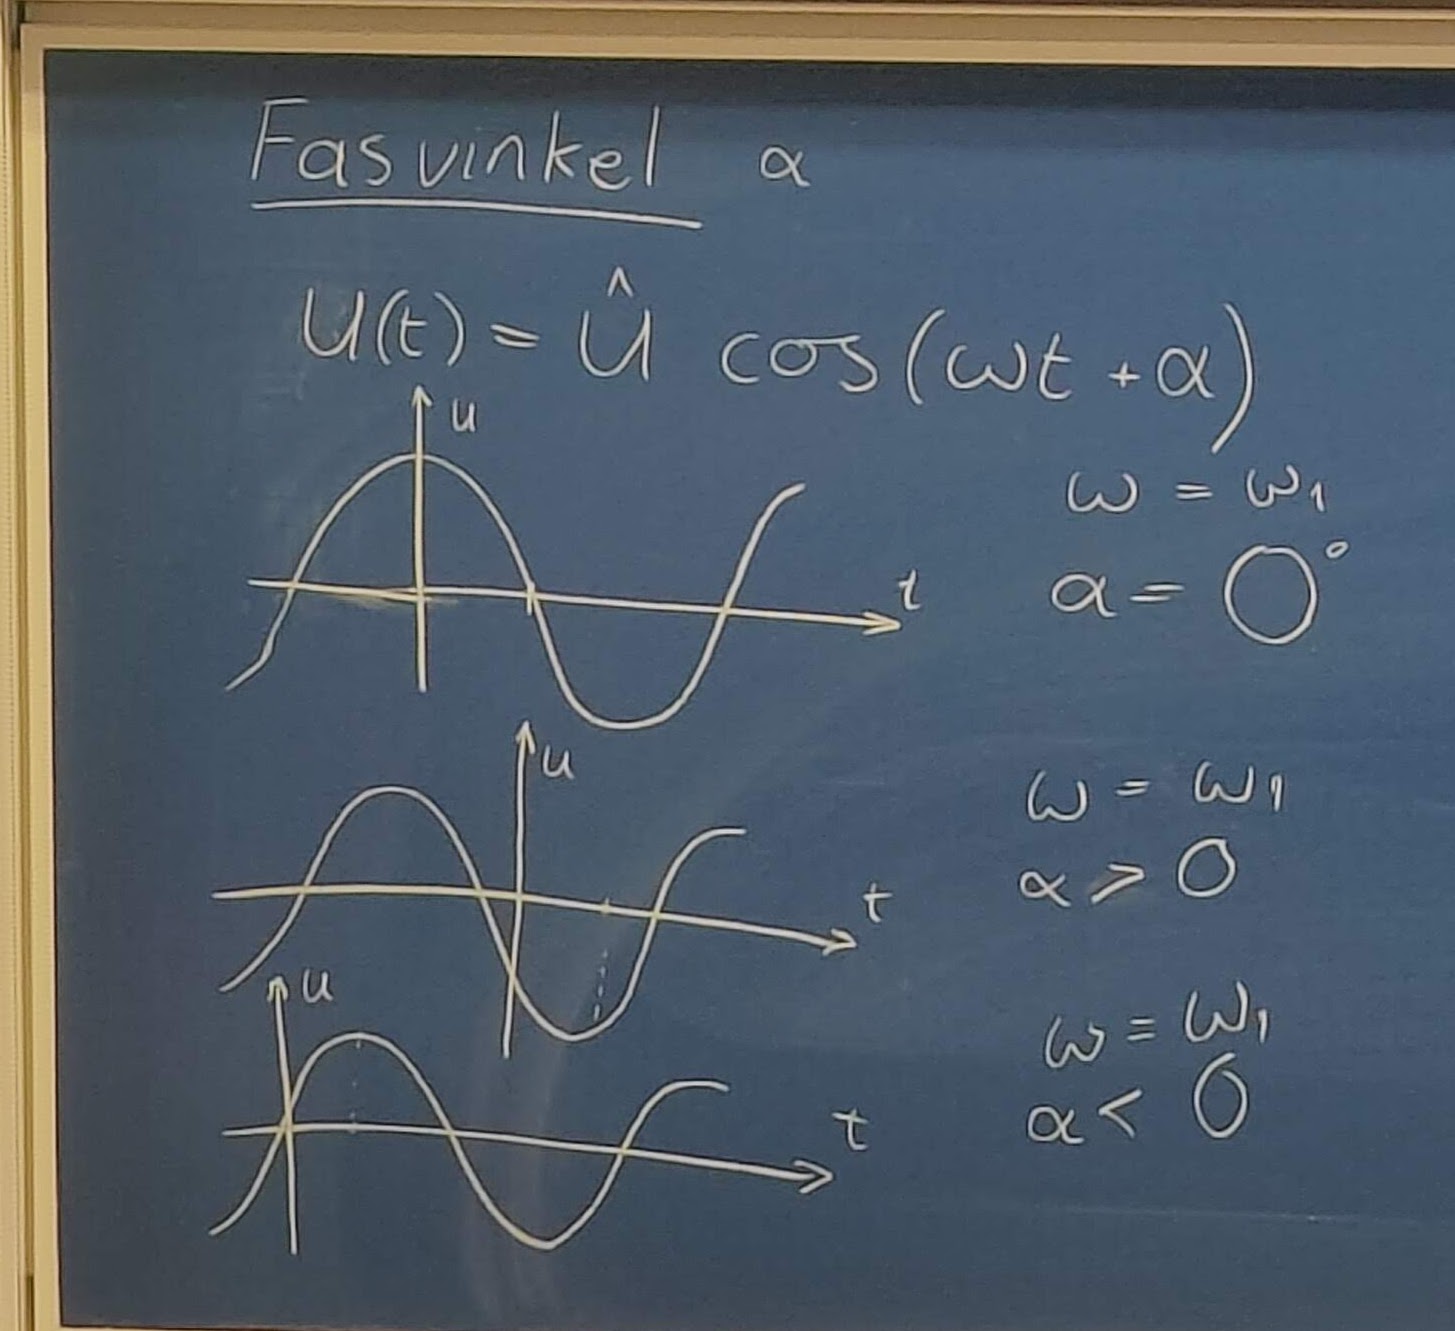 Fasvinkel α
u(t) = û cos(ωt + α)
u
ω = ω₁
t
α = 0°
u
ω = ω₁
t
α > 0
u
ω = ω₁
t
α < 0